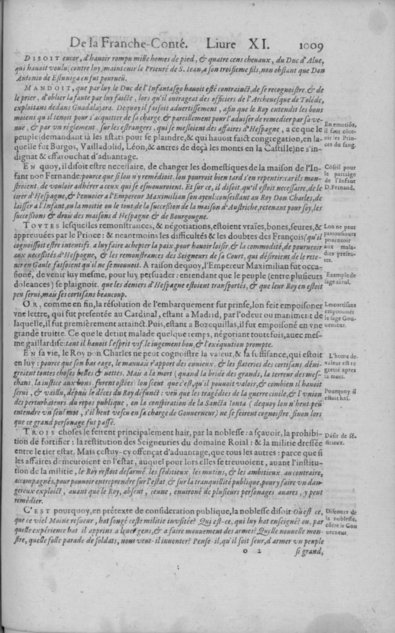 De la Franche-Conté. Liure XI. 1009
DISOIT encor, d'hauoir rompu mille homes de pied, & quatre cens cheuaux, du Duc d'Alue,
qui hauoit voulu, contre luy, maintenir le Prieuré de S. Iean, à son troisiesme fils, non obstant que Don
Antonio de Estuniga en fut pourueu.
MANDOIT, que par luy le Duc de l'Infantasge hauoit esté contrainct, de se recognoistre, & de
le prier, d'oblier la faute par luy faicte, lors qu'il outragea des officiers de l'Archeuesque de Tolede,
exploitans dedans Guadalajara. Dequoy il faisoit aduertissement, afin que le Roy entendit les bons
moiens qu'il tenoit pour s'acquitter de sa charge, & pareillement pour l'aduiser de remedier par sa ve-
nuë, & par vn reglement, sur les estrangers, qui se mesloient des affaires d'Hespagne, a ce que le
peuple (demandant ià les estats pour se plaindre, & qui hauoit faict congregation, en la-
quelle fut Burgos, Vailladolid, Léon, & autres de deçà les monts en la Castille) ne s'in-
dignat & effarouchat d'aduantage.
EN quoy, il disoit estre necessaire, de changer les domestiques de la maison de l'In-
fant non Fernande: pource que si lon n'y remedioit, lon pourroit bien tard s'en repentir: car ils mon-
stroient, de vouloir adhérer a ceux qui se esmouuroient. Et sur ce, il disoit, qu'il estoit necessaire, de le ti-
rer d'Hespagne, & l'enuoier a l'Empereur Maximilian son ayeul: conseillant au Roy Don Charles, de
laisser a l'Infant, ou la moitié ou le tout de la succession de la maison d'Austriche, retenant pour soy, les
successions & droit des maisons d'Hespagne & de Bourgougne.
TOVTES lesquelles remonstrances, & négotiations, estoient vraies, bonnes, seures, &
approuuées par le Prince: & neantmoins les difficultés & les doubtes des François (qu'il
cognoissoit estre intentifs a luy faire achepter la paix, pour hauoir loisir, & la commodité, de pouruoir
aux necessités d'Hespagne, & les remonstrances des Seigneurs de sa Court, qui desiroient de le rete-
nir en Gaule faisoient qu'il ne se mouuoit. A raison dequoy, l'Empereur Maximilian fut occa-
sioné, de venir luy mesme, pour luy persuader: entendant que le peuple (entre plusieurs
doleances) se plaignoit, que les deniers d'Hespagne estoient transportés, & que leur Roy en estoit
peu serui, mais ses certisans beaucoup.
OR, comme en fin, la résolution de l'embarquement fut prinse, lon feit empoisoner
vne lettre, qui fut presentée au Cardinal, estant a Madrid, par l'odeur ou maniment de
laquelle, il fut premièrement attainct. Puis, estant a Bozeguillas, il fut empoisoné en vne
grande truitte. Ce que le detint malade quelque temps, négotiant toutesfois, auec mes-
me gaillardise: tant il hauoit l'esprit vif, le iugement bon, & l'exequution prompte.
EN sa vie, le Roy Don Charles ne peut cognoistre la valeur, & sa suffisance, qui estoit
en luy: pource que son bas rage, le mauuais r'apport des enuieux, & les flateries des certisans deni-
groient toutes choses belles & nettes. Mais a la mort (quand la bride des grands, la terreur des mes-
chans, la iustice aux bons, furent ostées) lon sceut que c'est, qu'il pouuoit valoir, & combien il hauoit
serui, & vaillu, depuis le décès du Roy defunct: voir que les tragédies de la guerre ciuile, & l'vnion
des perturbateurs du repos publique, en la constitution de la Sancta Iunta (dequoy lon n'heut peu
entendre vn seul mot, s'il heut vescu en sa charge de Gouuerneur) ne se feirent cognoistre, sinon lors
que ce grand personage fut passé.
TROIS choses se feirent principalement haïr, par la noblesse: a sçauoir, la prohibition
de fortifier: la restitution des Seigneuries du domaine Roial: & la militie dressée
entre le tier estat. Mais cestuy-cy offençat d'aduantage, que tous les autres: parce que si
les affaires demeuroient en l'estat, auquel pour lors elles se treuuoient, auant l'institu-
tion de la militie, le Roy restoit désarmé. les séditieux, les mutins, & les ambitieux, au contraire,
accompagnés, pour pouuoir entreprendre sur l'estat & sur la tranquillité publique, pour y faire vn dan-
gereux exploict, auant que le Roy, absent, ieune, enuironé de plusieurs personages auares, y peut
remédier.
C'EST pourquoy, en prétexte de consideration publique, la noblesse disoit Où est ce,
que ce viel Moine resueur, hat songé ceste militie inusitée? Qui est-ce, qui luy hat enseigné? ou, par
quelle expérience hat il apprins a ieuer gens, & a faire mouuement des armes? Quelle nouuelle mon-
stre, quelle folle parade de soldats, nous vent-il inuenter? Pense-il, qu'il soit seur, d'armer vn peuple
o 2 si grand,
En enuoiée,
il faut obeir-
uer le Prin-
ce du sang.
Cösiel pour
le partage
de l'Infant
D. Fernand.
Lon ne peut
pouruoir
aux malades
Exemple de
sage animal.
L'heure de
valeur est co-
gneue apres
la mort.
Pourquoy il
estoit haï.
Discours de
la noblesse,
côtre le Gou
uerneur.